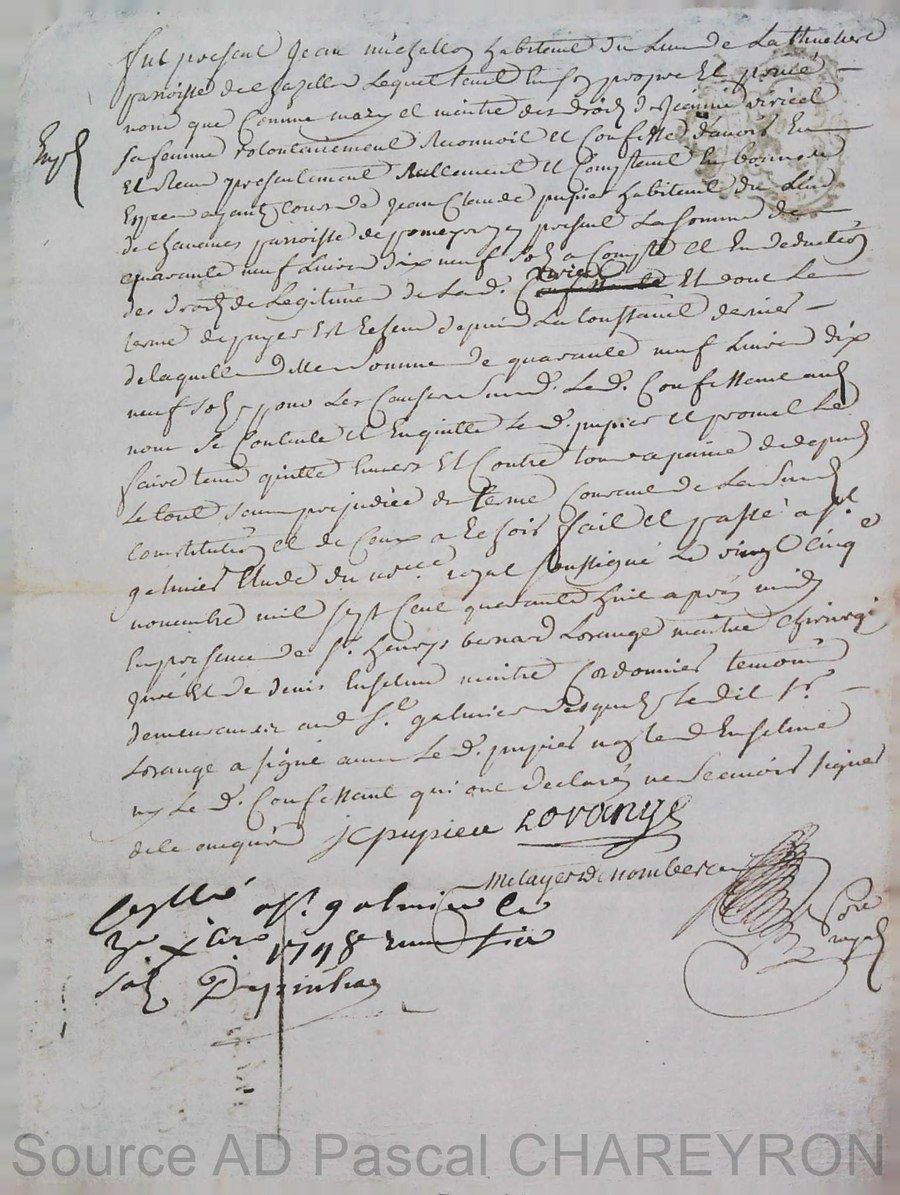 Fut present Jean michallon habitant du Lieu de La thueliere
parroisse de chazelles Lequel tant En son propre Et privé
nom que Comme mary et maitre des droits de Jeanne viricel
Sa femme volontairement Reconnoit Et Confesse d'avoir Eu
Et Receu presentement Reellement Et Comptant En bonnes
Especes ayant cours de Jean Claude pupier habitant du Lieu
de chavannes parroisse de pomeys icy present La Somme de
quarante neuf Livres dix neuf sols a Compte et En deduction
des droits de Legitime de La d. viricel Et dont Le
terme de payer Est Echeu depuis La toussaint dernier
de laquelle ditte Somme de quarante neuf Livres dix
neuf sols pour Les Causes Susd. Le d. Confessant aud.
nom Se Contente et En quitte Le d. pupier et promet Le
faire tenir quitte Envers Et Contre tous a peine de depens
Le tout sans prejudice du terme Courant de La Susd.
Constitution et de Ceux a Echoir fait et passé a St
galmier Etude du no.re royal soussigné Le vingt cinq e
novembre mil sept cent quarante huit apres midy
En presence de Sr henrys bernard Lorange maitre chirurgi
juré Et de denis Enselme maitre Cordonnier temoins
demeurants aud. St galmier desquels Le dit Sr
Lorange a signé avec Le d. pupier non Led Enselme
ny Le d. Confessant qui ont declaré ne Scavoir signer
de ce enquis jc pupieu Lorange
Expd
Metayer de nombere
no.re
royal
Conllé a St galmier le
Xbre 1748 Receu
sols